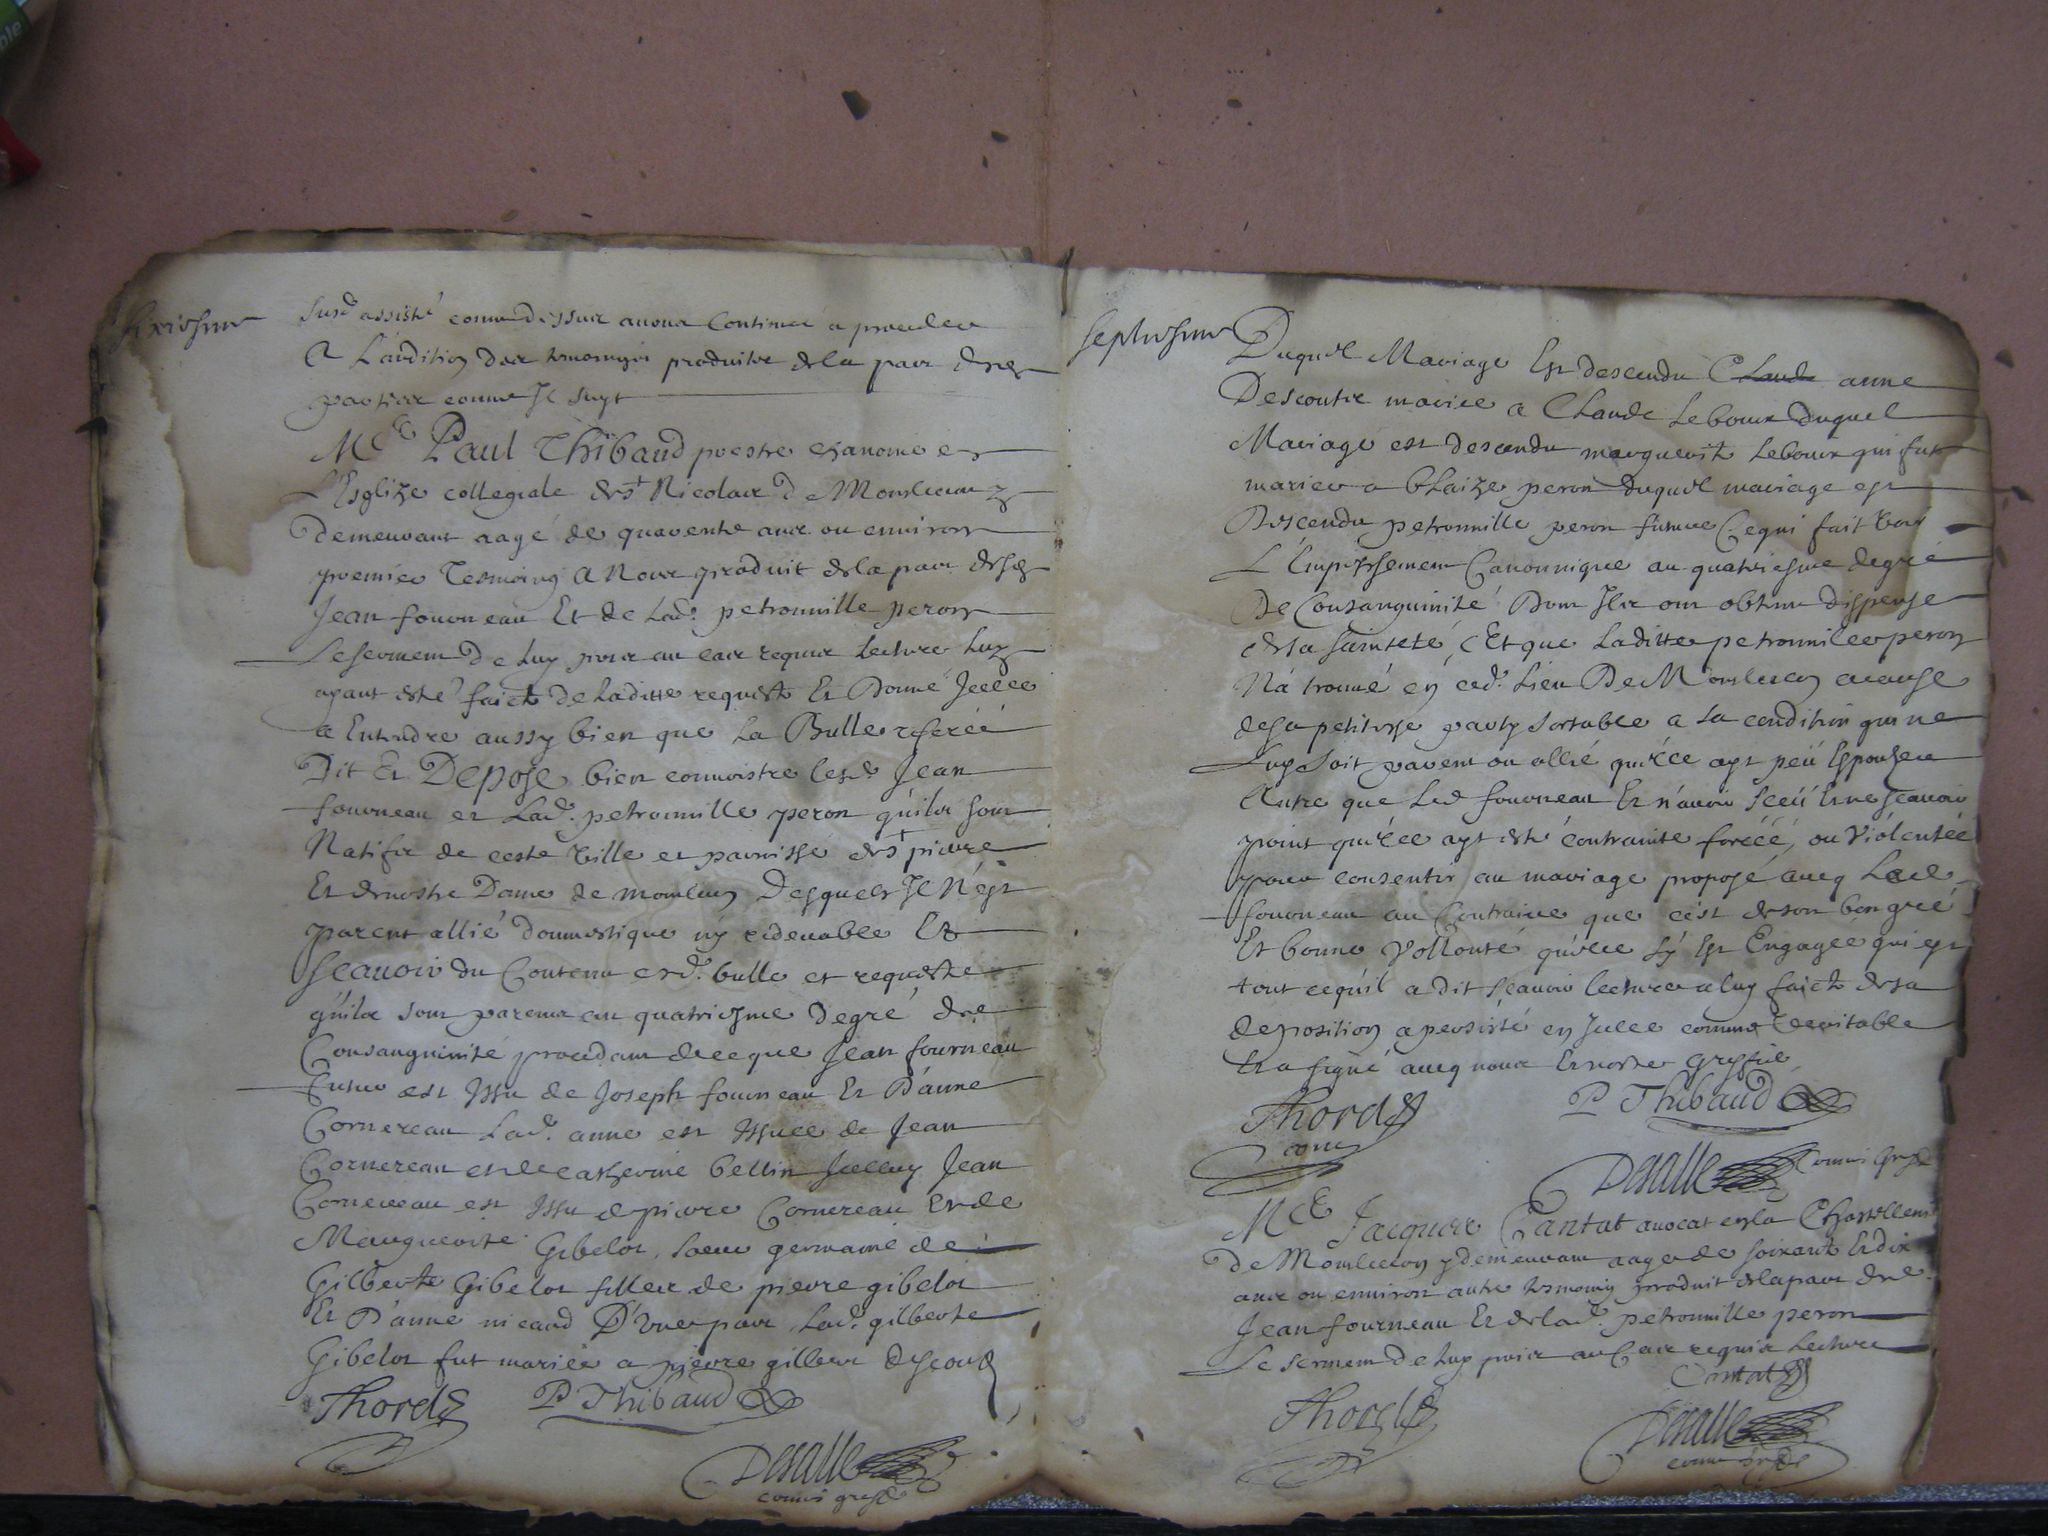 sixiesme
Susd assisté comme dessus avons continué a proceder
A L'audition des tesmoings produites de la part desd
parties comme Il suyt
Mre Paul Thibaud prestre chanoine en
L'Esglize collegiale de st Nicolas de Monlucon y
demeurant aagé de quarente ans ou environ
premier Tesmoing A Nous produit de la part desd
Jean fourneau Et de Lad. petronnille peron
Le serment de luy pris au cas requis Lecture luy
ayant esté faicte de Laditte requeste Et Donné Jcelle
a Entendre aussy bien que La Bulle referéé
Dit Et Depose bien connoistre lesd Jean
fourneau et Lad. petronnille peron quils sont
Natifs de ceste ville et parroisse de st pierre
Et de nostre Dame de monlucon Desquels Il N'est
parent allié domestique ny redevable Et
Scauoir du Contenu esd. bulle et requeste
quils sont parents au quatriesme degré de
Consanguinité procedant de ce que Jean fourneau
futur est Issu de Joseph fourneau Et D'anne
Cornereau Lad. anne est Issuee de Jean
Cornereau et de catherine bellin Jcelluy Jean
Cornereau est Issu de pierre Cornereau Et de
Marguerite Gibelot, soeur germaine de
Gilberte Gibelot filles de pierre gibelot
Et D'anne nicaud D'Une part Lad. gilberte
Gibelot fut mariée a pierre gilbert descout
Thord
P Thibaud
Desalle
commis greffe
septiesme
Duquel Mariage Est descendu Claude anne
Descoutx mariee a Claude Lebour duquel
Mariage est descendu marguerite Lebour qui fut
mariee a blaize peron duquel mariage est
Descendu petronnille peron future Ce qui fait voir
L'Empeschement Canonnique au quatriesme degré
De Consanguinité Dont Ils ont obtenu dispense
de sa sainteté, Et que Laditte petronnille peron
N'a trouué en ced. Lieu De Monlucon a cause
de sa petitesse party sortable a sa condition qui ne
Luy soit parent ou allié qu'elle ayt peü Espouser
autre que Led fourneau Et n'auoir sceü Et ne scauoir
point qu'elle ayt esté contrainte forcéé, ou Violentéé
pour consentir au mariage proposé aueq Led
fourneau au Contraire que c'est de son bon gré
Et bonne Vollonté qu'elle s'y Est Engagéé qui est
tout ce qu'il a dit scauoir lecture a luy faicte de sa
deposition a persisté en Jcelle comme Veritable
Et a signé aueq nous Et nostre greffié
Thord
P Thibaud
com
Desalle commis Greffe
Mre Jacques Cantat auocat en la Chastellenie
de Monlucon y demeurant aagé de soixante Et dix
ans ou environ autre tesmoing produit de la part de
Jean fourneau Et de lad. petronnille peron
Le serment de luy pris au Cas requis Lecture
Cantat
Thord
Desalle
commis greffe